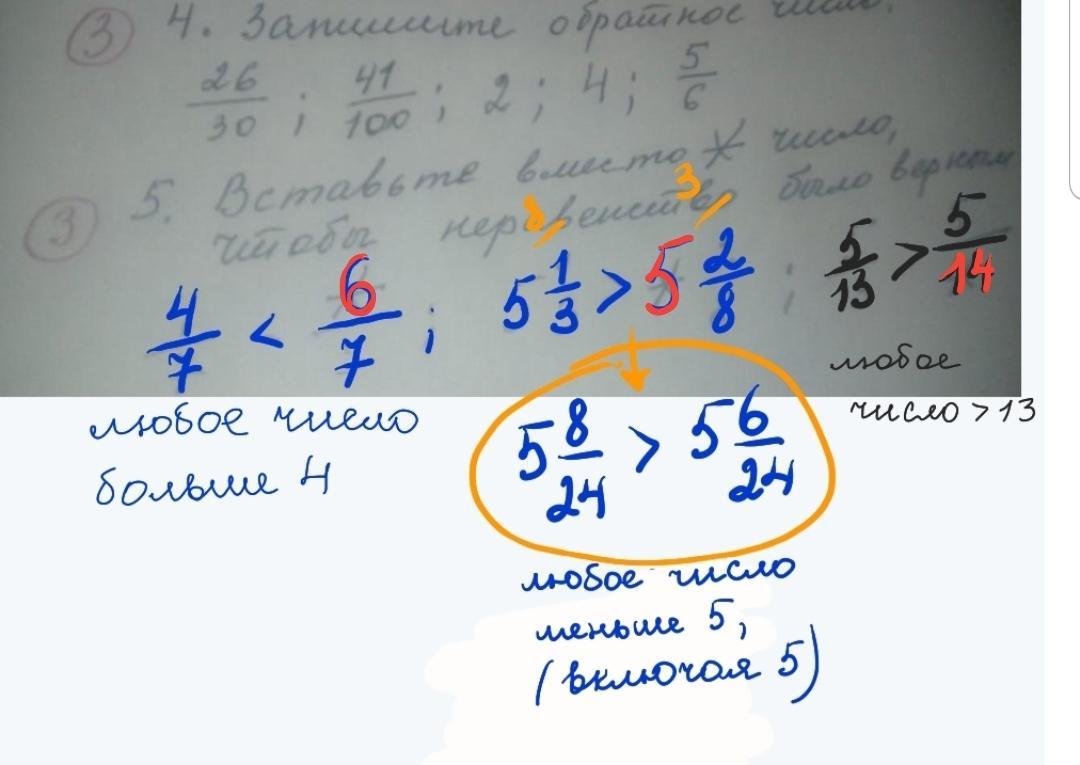 3 4. Запишите обратное число.
26/30 ; 41/100 ; 2 ; 4 ; 5/6
3 5. Вставьте вместо * число,
чтобы неравенство было верным
8 3
4/7 < 6/7 ; 5 1/3 > 5 2/8 ; 5/13 > 5/14
любое
число > 13
любое число
больше 4
5 8/24 > 5 6/24
любое число
меньше 5,
(включая 5)